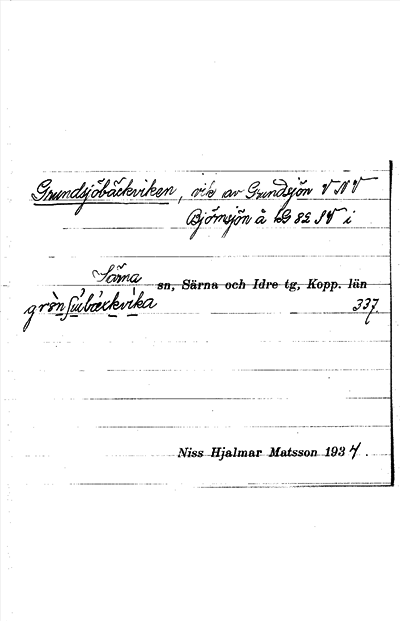 Grundsjöbäckviken, vik av Grundsjön V N V
Björnsjön å bl 82 SV i
Särna sn, Särna och Idre tg, Kopp. län
337.
Niss Hjalmar Matsson 1934.